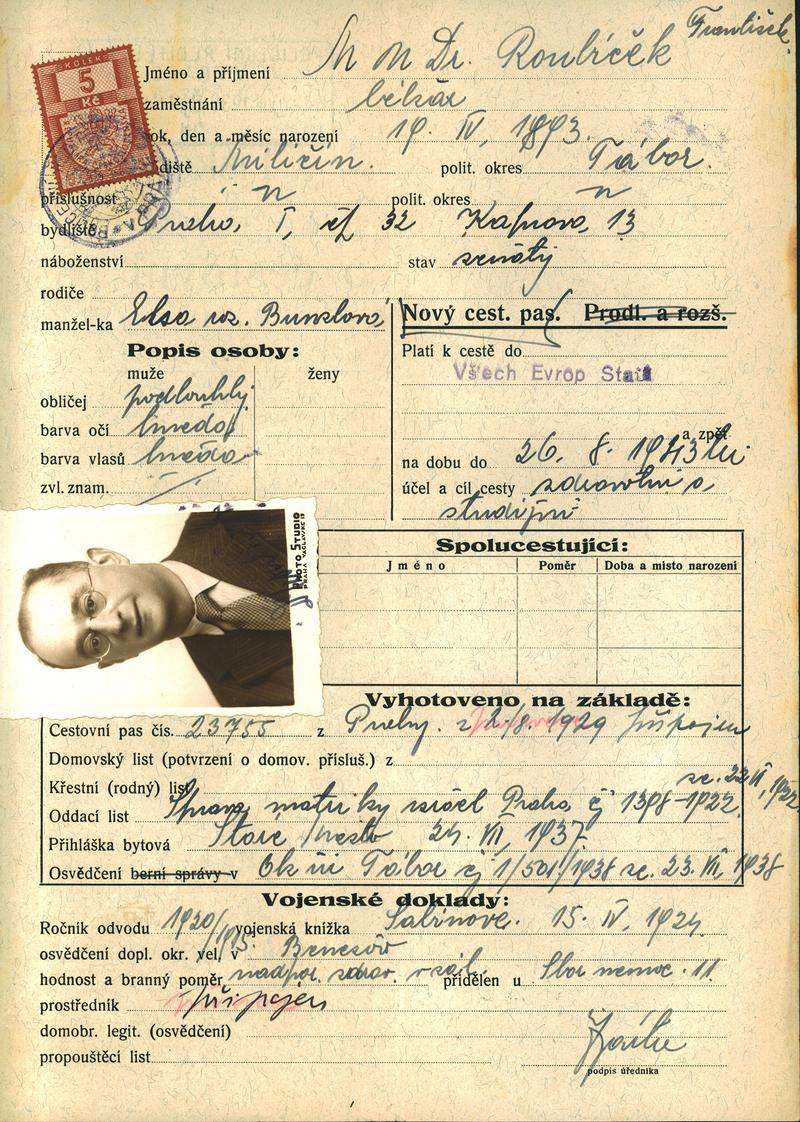 František
Jméno a příjmení M U Dr. Roubíček
KOLEK
5
Kč
zaměstnání lékař
rok, den a měsíc narození 19. IV. 1893.
diště Miličín. polit. okres Tábor.
příslušnost " n polit. okres n
bydliště Praha, I, čp 32 Kaprova 13
náboženství stav ženatý
rodiče
manžel-ka Elsa roz. Bunzlová
Nový cest. pas. Prodl. a rozš.
Popis osoby:
Platí k cestě do
muže ženy
Všech Evrop Států
obličej podlouhlý
barva očí hnědá
a zpět
barva vlasů hnědá
na dobu do 26. 8. 1943
zvl. znam.
účel a cíl cesty zdravotní a
studijní
FOTO STUDIO
PRAHA VÁCLAVSKÉ
Spolucestující:
Jméno Poměr Doba a místo narození
Vyhotoveno na základě:
Cestovní pas čís. 23755 z Prahy. 2/8. 1929 připojen
Domovský list (potvrzení o domov. přísluš.) z
Křestní (rodný) list
Oddací list Správa matriky israel Praha čj 1398-1922.
Přihláška bytová Staré Město 24. VII, 1937
Osvědčení berní správy v Ok úř Tábor čj 1/501/1938 ze. 23. VII, 1938
Vojenské doklady:
Ročník odvodu 1920/ vojenská knížka Sabinov. 15. IV, 1924.
osvědčení dopl. okr. vel. v Benešov
hodnost a branný poměr nadpor. zdrav. v zál. přidělen u Sbor nemoc. 11
prostředník připojen
domobr. legit. (osvědčení)
propouštěcí list
podpis úředníka